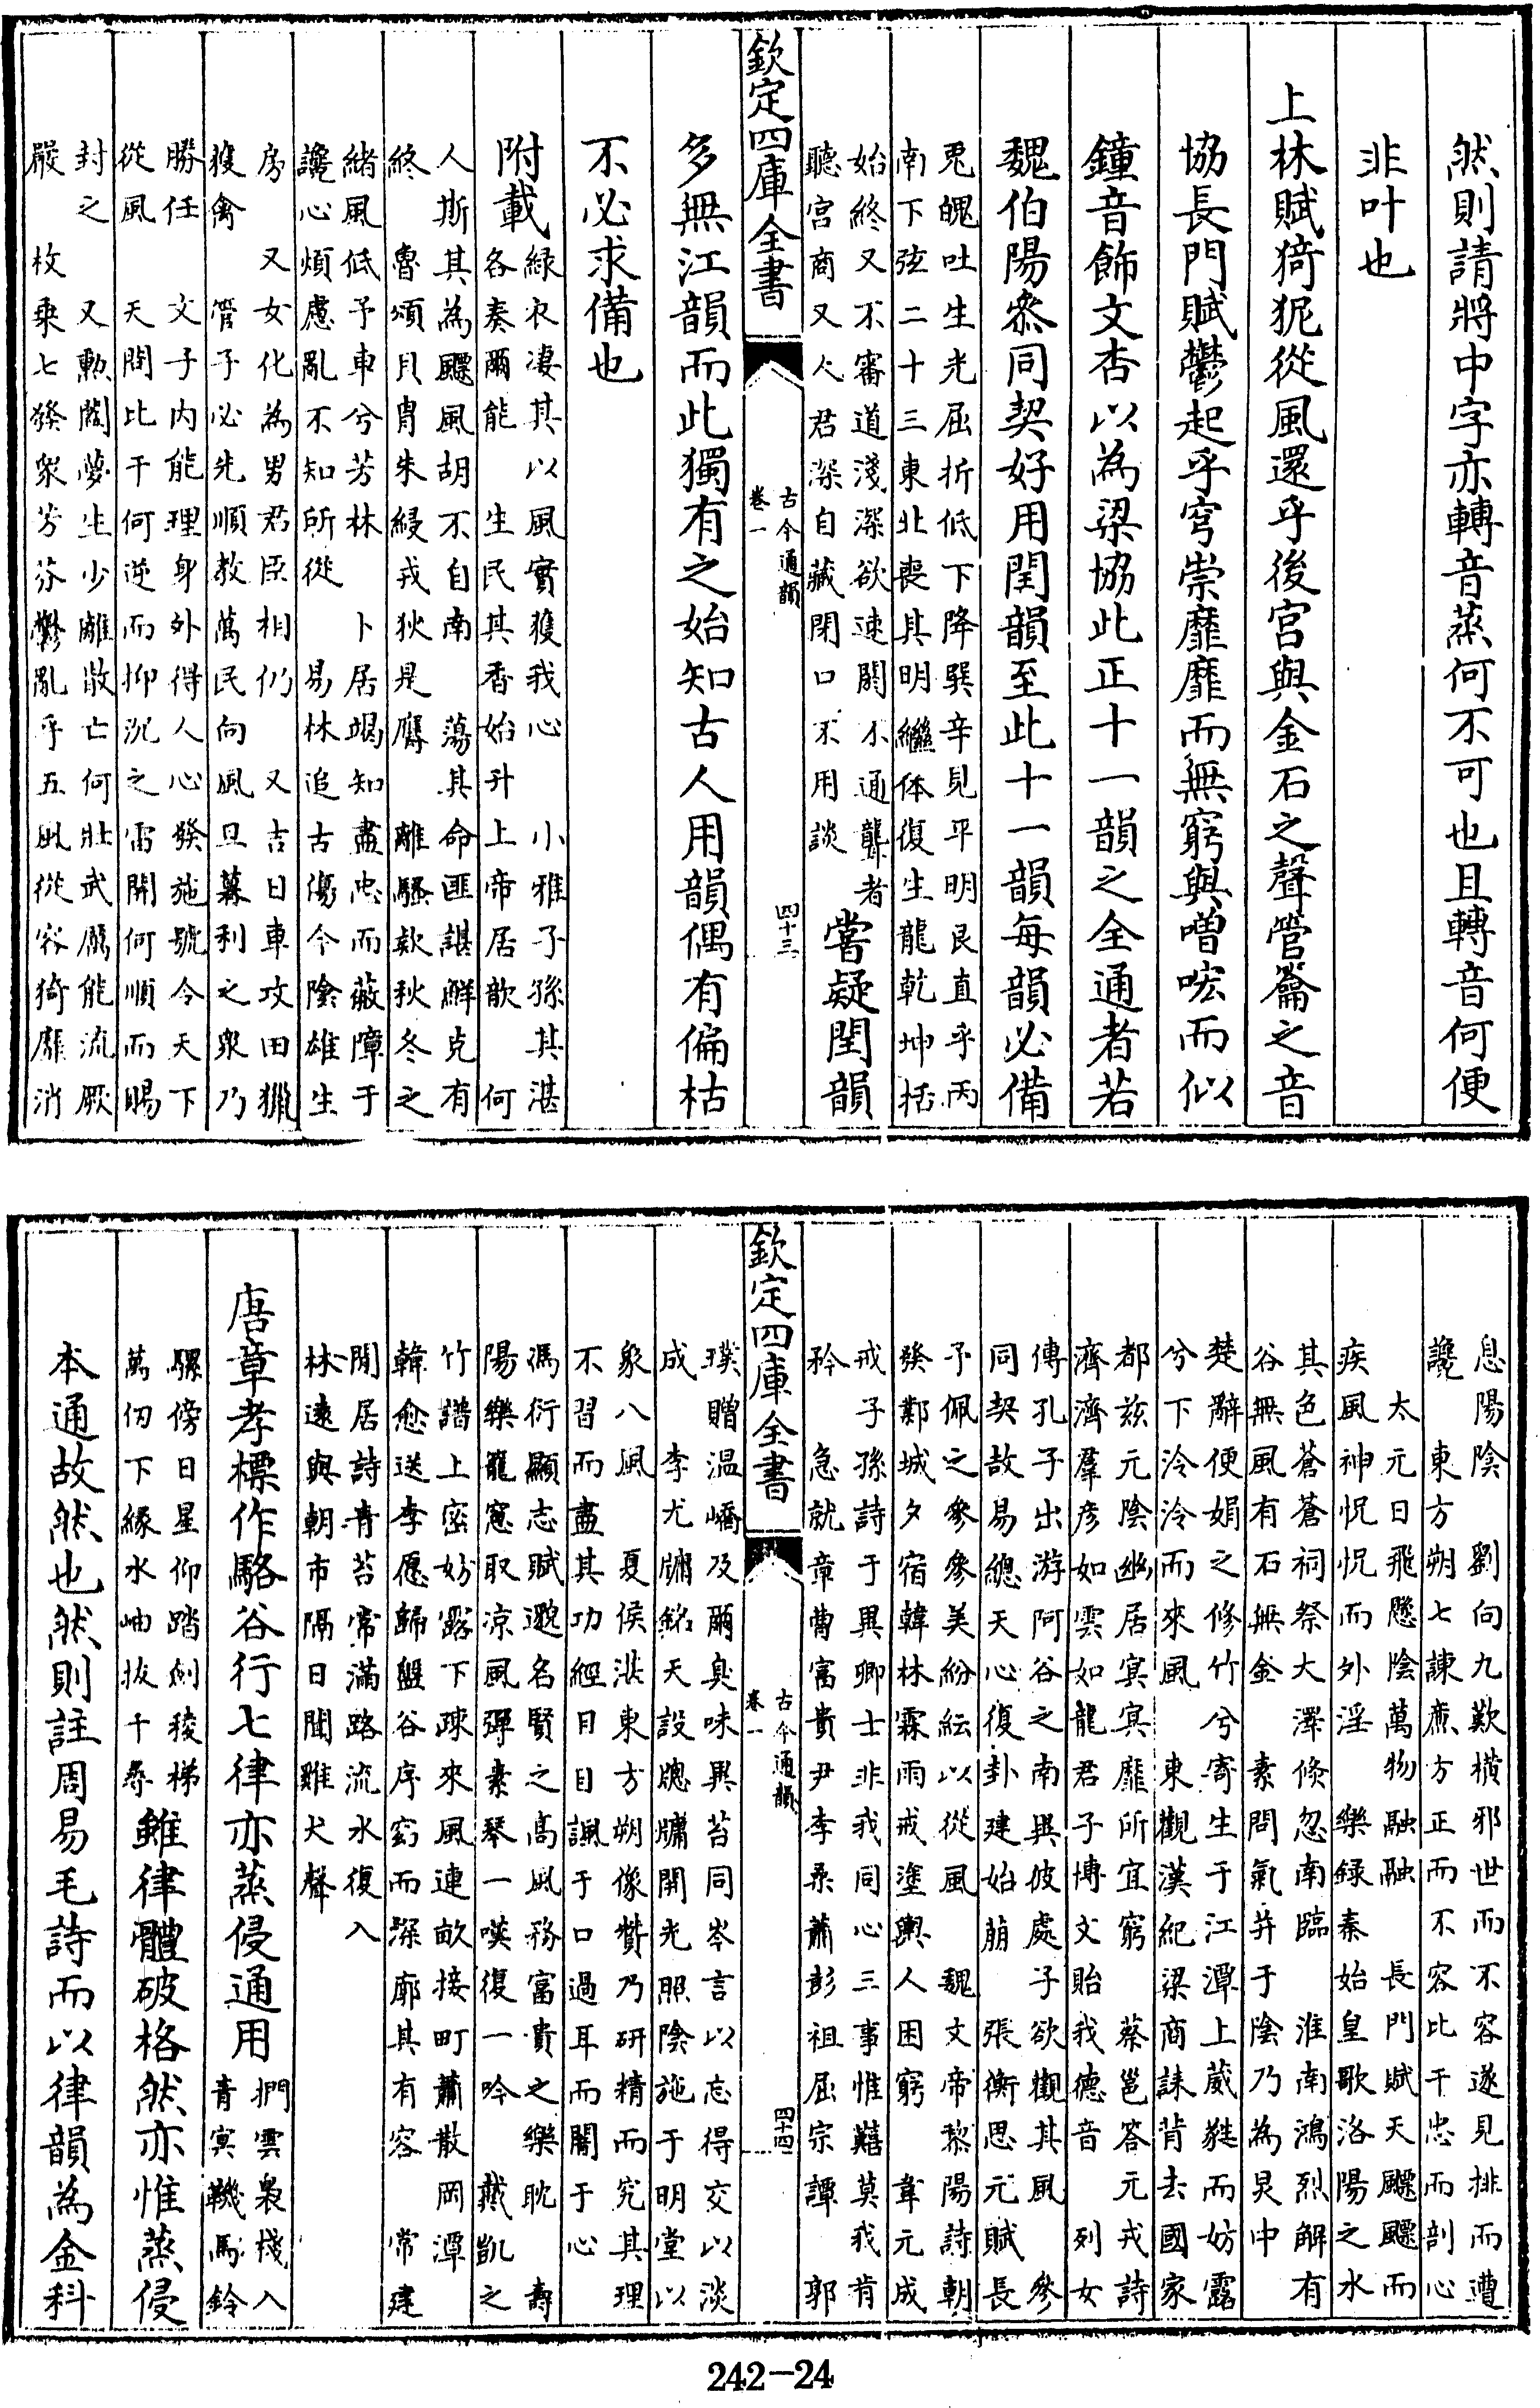 然則請將中字亦轉音蒸何不可也且轉音何便
非叶也
上林賦猗狔從風還乎後宮與金石之聲管籥之音
協長門賦鬱起乎穹崇靡靡而無窮與噌吰而似
鐘音飾文杏以為梁協此正十一韻之全通者若
魏伯陽參同契好用閏韻至此十一韻每韻必備
兎魄吐生光屈折低下降巽辛見平明艮直乎丙
南下弦二十三東北喪其明繼体復生龍乾坤括
始終又不審道淺深欲速閼不通聾者
聽宫商又人君深自藏閉口不用談
嘗疑閏韻
欽定四庫全書
古今通韻
卷一
四十三
多無江韻而此獨有之始知古人用韻偶有偏枯
不必求備也
附載
緑衣凄其以風實獲我心 小雅子孫其湛
各奏爾能 生民其香始升上帝居歆 何
人斯其為飄風胡不自南 蕩其命匪諶鮮克有
終 魯頌貝胄朱綅戎狄是膺 離騷欸秋冬之
緒風低予車兮芳林 卜居竭知盡忠而蔽障于
讒心煩慮亂不知所從 易林追古傷今陰雄生
房 又女化為男君臣相仍 又吉日車攻田獵
獲禽 管子必先順教萬民向風旦暮利之衆乃
勝任 文子内能理身外得人心發施號令天下
從風 天問比干何逆而抑沉之雷開何順而賜
封之 又勲闔夢生少離散亡何壯武厲能流厥
嚴 枚乘七發衆芳芬鬱亂乎五風從容猗靡消
息陽陰 劉向九歎橫邪世而不容遂見排而遭
讒 東方朔七諫㢘方正而不容比干忠而剖心
太元日飛懸陰萬物融融 長門賦天飄飄而
疾風神怳怳而外淫 樂録秦始皇歌洛陽之水
其色蒼蒼祠祭大澤倐忽南臨 淮南鴻烈解有
谷無風有石無金 素問氣并于陰乃為炅中
楚辭便娟之修竹兮寄生于江潭上葳蕤而防露
兮下泠泠而來風 東觀漢紀梁商誄背去國家
都兹元陰幽居冥冥靡所宜窮 蔡邕答元戎詩
濟濟羣彦如雲如龍君子博文貽我德音 列女
傳孔子出游阿谷之南與彼處子欲觀其風 參
同契故易總天心復卦建始萠 張衡思元賦長
予佩之參參美紛紜以從風 魏文帝黎陽詩朝
發鄴城夕宿韓林霖雨戒塗輿人困窮 韋元成
戒子孫詩于異卿士非我同心三事惟囏莫我肯
矜 急就章曹富貴尹李桑蕭彭祖屈宗譚 郭
欽定四庫全書
古今通韻
卷一
四十四
璞贈温嶠及爾臭味異苔同岑言以忘得交以淡
成 李尤牖銘天設牕牖開光照陰施于明堂以
象八風 夏侯湛東方朔像贊乃研精而究其理
不習而盡其功經目目諷于口過耳而闇于心
馮衍顯志賦邈名賢之高風務富貴之樂耽 壽
陽樂籠窻取涼風彈素琴一嘆復一吟 戴凱之
竹譜上密防露下疎來風連畝接町蕭散岡潭
韓愈送李愿歸盤谷序窈而深廓其有容 常建
閒居詩青苔常滿路流水復入
林遠與朝市隔日聞雞犬聲
唐章孝標作駱谷行七律亦蒸侵通用
捫雲裊棧入
青冥鞿馬鈴
騾傍日星仰踏劍稜梯
萬仞下緣水岫拔千尋
雖律體破格然亦惟蒸侵
本通故然也然則註周易毛詩而以律韻為金科
242-24